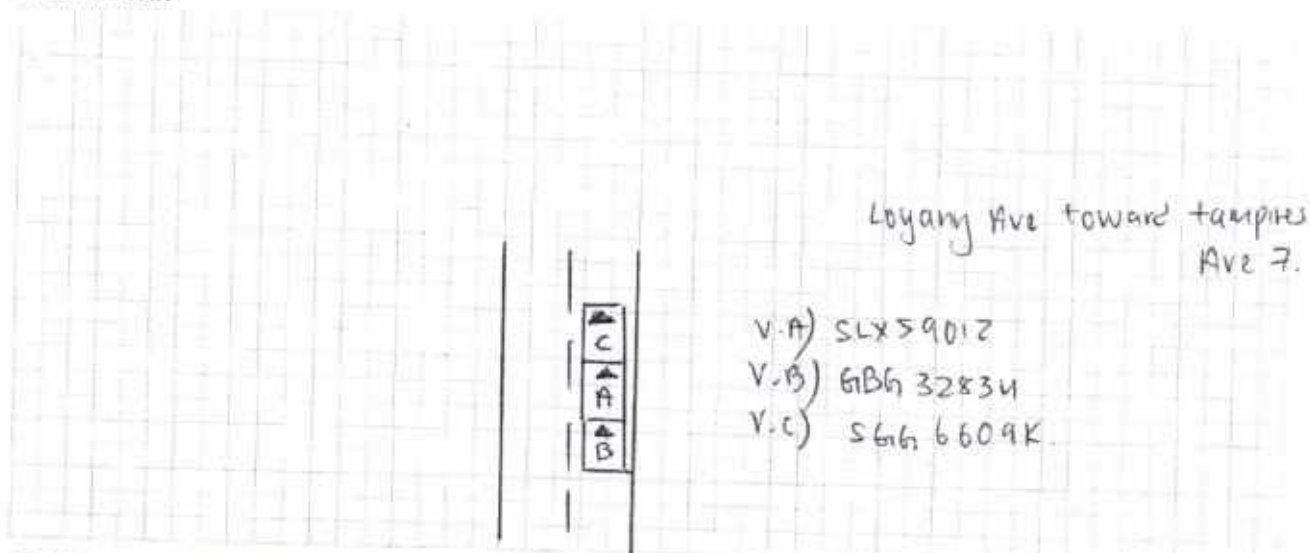 Loyang Ave toward tampines
Ave 7.
C
A
B
V.A) SLX5901Z
V.B) GBG 3283U
V.C) SGG 6609K.